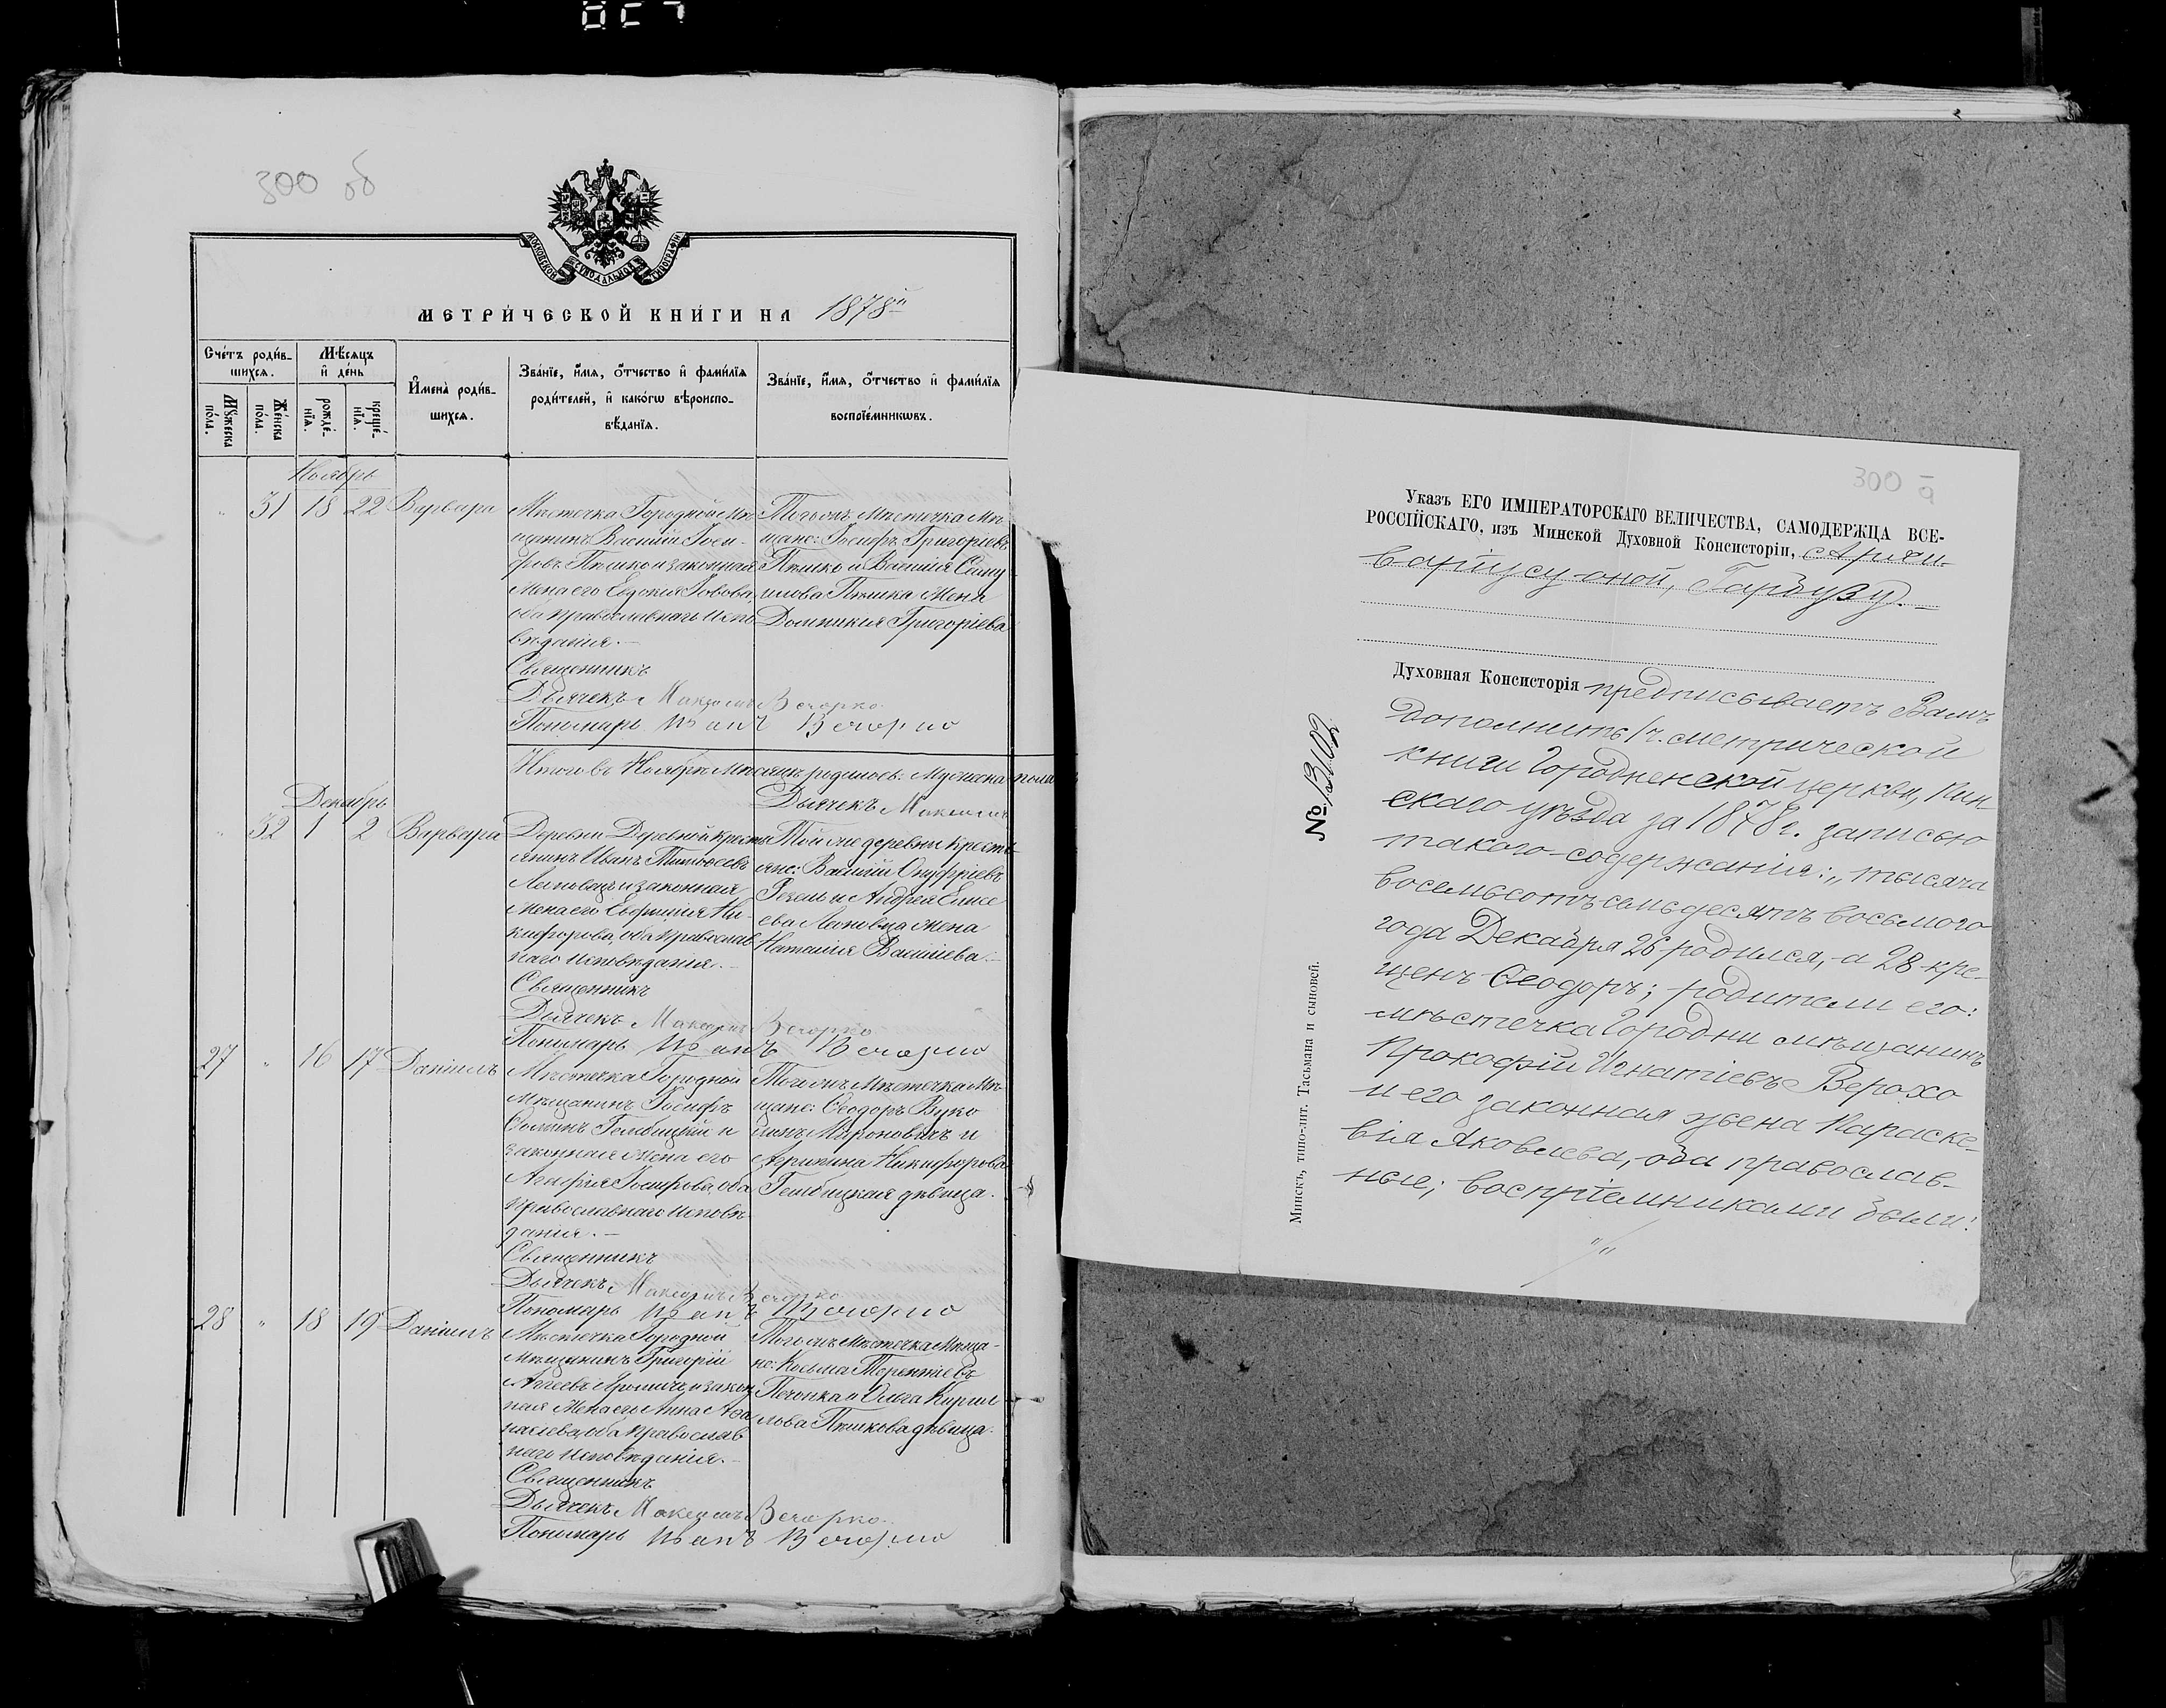 300 об
МОСКОВСКОЙ СѴНОДАЛЬНОЙ ТИПОГРАФІИ
МЕТРИ́ЧЕСКОЙ КНИ́ГИ НА 1878й
Сче́тъ роди́в-
шихся.
Мѣ́сяцъ
и҆ де́нь
Мꙋ́жеска
по́ла.
Же́нска
по́ла.
рожде́-
нїѧ.
креще́-
нїѧ.
И҆мена̀ роди́в-
шихсѧ.
Зва́нїе, и҆́мѧ, ѻ҆́тчество и҆ фами́лїѧ
роди́телей, и҆ како́гѡ вѣроиспо-
вѣ́данїѧ.
Зва́нїе, и҆́мѧ, ѻ҆́тчество и҆ фами́лїѧ
воспрїе́мникѡвъ.
Ноябрь
31 18 22 Варвара
Мѣстечка Городной Мѣ-
щанинъ Василій Іоси-
фовъ Пашко и законная
Жена его Евдокія Іовова,
оба православнаго испо
вѣданія.—
Священникъ
Дьячекъ Максимъ Вечорко
Пономарь Иванъ Вечорко
Тогожъ Мѣстечка Мѣ-
щане: Іосифъ Григоріевъ
Пашко и Василія
Жена
Домникія Григоріева
Итого въ Ноябрѣ Мѣсяцѣ родилось: Мужеска пола
Дьячекъ Максимъ
Декабрь
32 1 2 Варвара
Деревни Деревной Кресть
янинъ Иванъ
Леповецъ и законная
Жена его Евфимія Ни-
кифорова, оба Православ
наго исповѣданія.—
Священникъ
Дьячекъ Максимъ Вечорко
Пономарь Иванъ Вечорко
Той же деревни Кресть-
яне: Василій Онуфріевъ
и Андрея Елисе
ева Леповца жена
Наталія Василіева.—
27 " 16 17 Даніилъ
Мѣстечка Городной
Мѣщанинъ Іосифъ
и
законная Жена его
Агафія Іосифова, оба
Православнаго исповѣ-
данія.—
Священникъ
Дьячекъ Максимъ Вечорко
Пономарь Иванъ Вечорко
Тогожъ Мѣстечка Мѣ-
щане: Ѳеодоръ
Мироновичъ и
Агрипина Никифорова
дѣвица.
28 " 18 19 Даніилъ
Мѣстечка Городной
Мѣщанинъ Григорій
и закон
ная Жена его Анна Аѳа
насіева, оба Православ
наго исповѣданія.—
Священникъ
Дьячекъ Максимъ Вечорко
Пономарь Иванъ Вечорко
Тогожъ Мѣстечка Мѣща-
не: Косьма Терентіевъ
и Ольга Кирил
лова Пашкова дѣвица.
300 а
Указъ ЕГО ИМПЕРАТОРСКАГО ВЕЛИЧЕСТВА, САМОДЕРЖЦА ВСЕ-
РОССІЙСКАГО, изъ Минской Духовной Консисторіи, Архи-
варіусу оной, Гарбузу.—
Духовная Консисторія предписываетъ Вамъ
дополнить 1 ч. метрической
книги Городненской церкви, Пин-
скаго уѣзда за 1878 г. записью
такого содержанія: „тысяча
восемьсотъ семьдесятъ восьмого
года Декабря 26 родился, а 28 кре-
щенъ Ѳеодоръ; родители его:
мѣстечка Городни мѣщанинъ
Прокофій Игнатіевъ Верохо
и его законная жена Параске-
вія Яковлева, оба православ-
ные; воспріемниками были:
№ 13102
Минскъ, типо-лит. Тасьмана и сыновей.